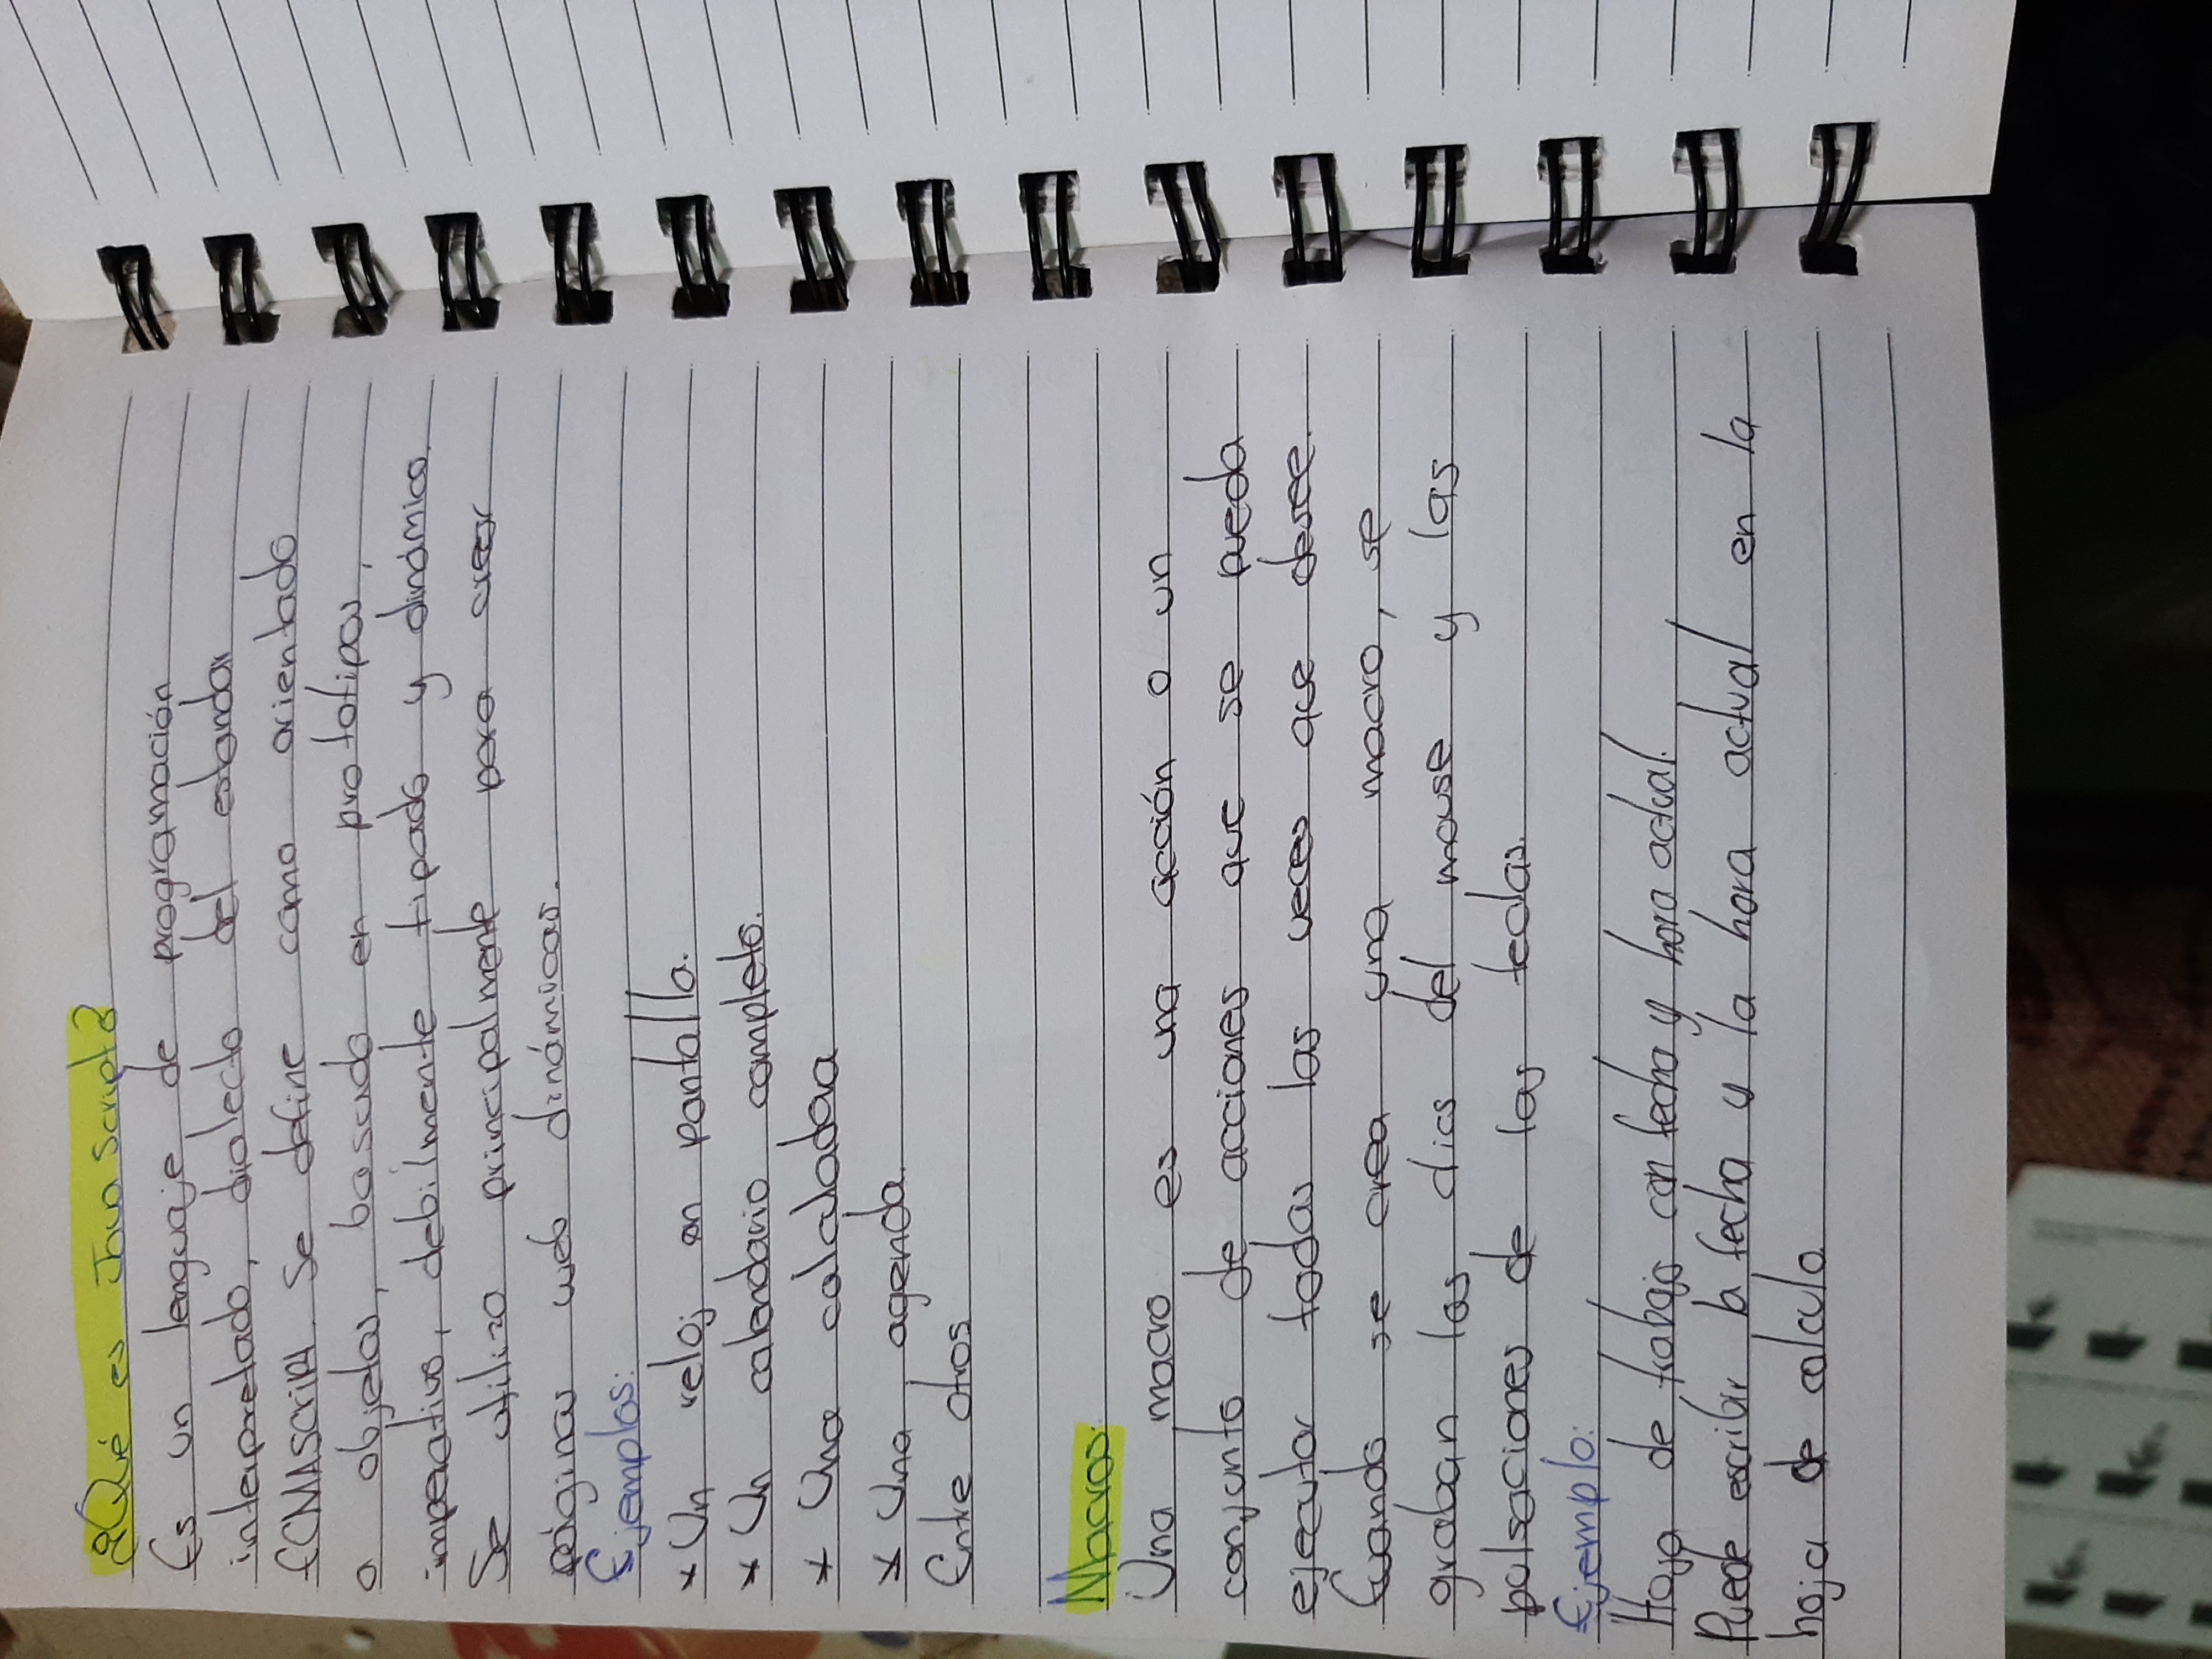 ¿Qué es Java script?
Es un lenguaje de programación
interpretado, dialecto del estandar
ECMAScript. Se define como orientado
a objetos, basado en prototipos,
impeativo, debilmente tipado y dinámico.
Se utiliza principalmente para crear
páginas web dinámicas.
Ejemplos:
* Un reloj en pantalla.
* Un calendario completo.
* Una calculadora
* Una agenda.
Entre otros
Macros:
Una macro es una acción o un
conjunto de acciones que se pueda
ejecutar todas las veces que desee.
Cuando se crea una macro, se
graban los clics del mouse y las
pulsaciones de las teclas.
Ejemplo:
Hoja de trabajo con fecha y hora actual.
Puede escribir la fecha y la hora actual en la
hoja de calculo